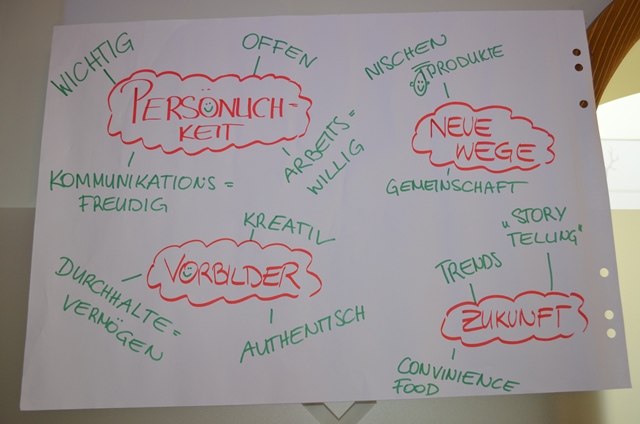 WICHTIG
OFFEN
PERSÖNLICH-
KEIT
ARBEITS=
WILLIG
KOMMUNIKATIONS=
FREUDIG
NISCHEN
PRODUKTE
NEUE
WEGE
GEMEINSCHAFT
KREATIV
VORBILDER
DURCHHALTE=
VERMÖGEN
AUTHENTISCH
„STORY
TELLING"
TRENDS
ZUKUNFT
CONVINIENCE
FOOD